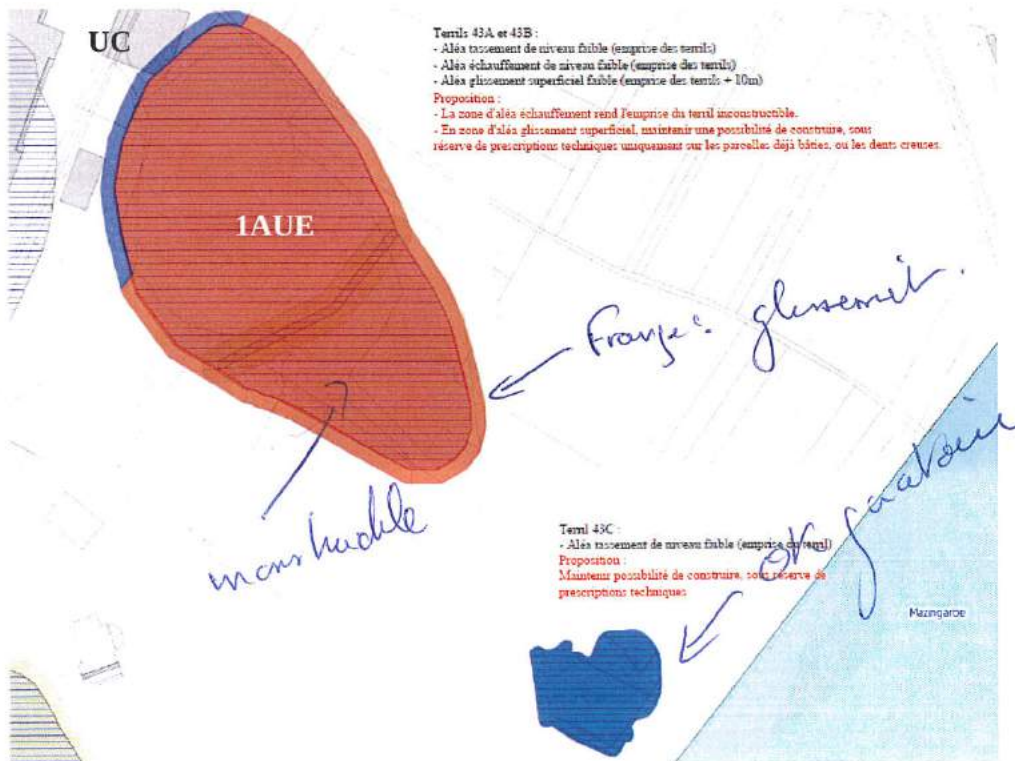 UC
Terrils 43A et 43B :
- Aléa tassement de niveau faible (emprise des terrils)
- Aléa échauffement de niveau faible (emprise des terrils)
- Aléa glissement superficiel faible (emprise des terrils + 10m)
Proposition :
- La zone d'aléa échauffement rend l'emprise du terril inconstructible.
- En zone d'aléa glissement superficiel, maintenir une possibilité de construire, sous
réserve de prescriptions techniques uniquement sur les parcelles déjà bâties, ou les dents creuses.
1AUE
glissement.
Terril 43C :
- Aléa tassement de niveau faible (emprise du terril)
Proposition :
Maintenir possibilité de construire, sous réserve de
prescriptions techniques
OK
Mazingarbe